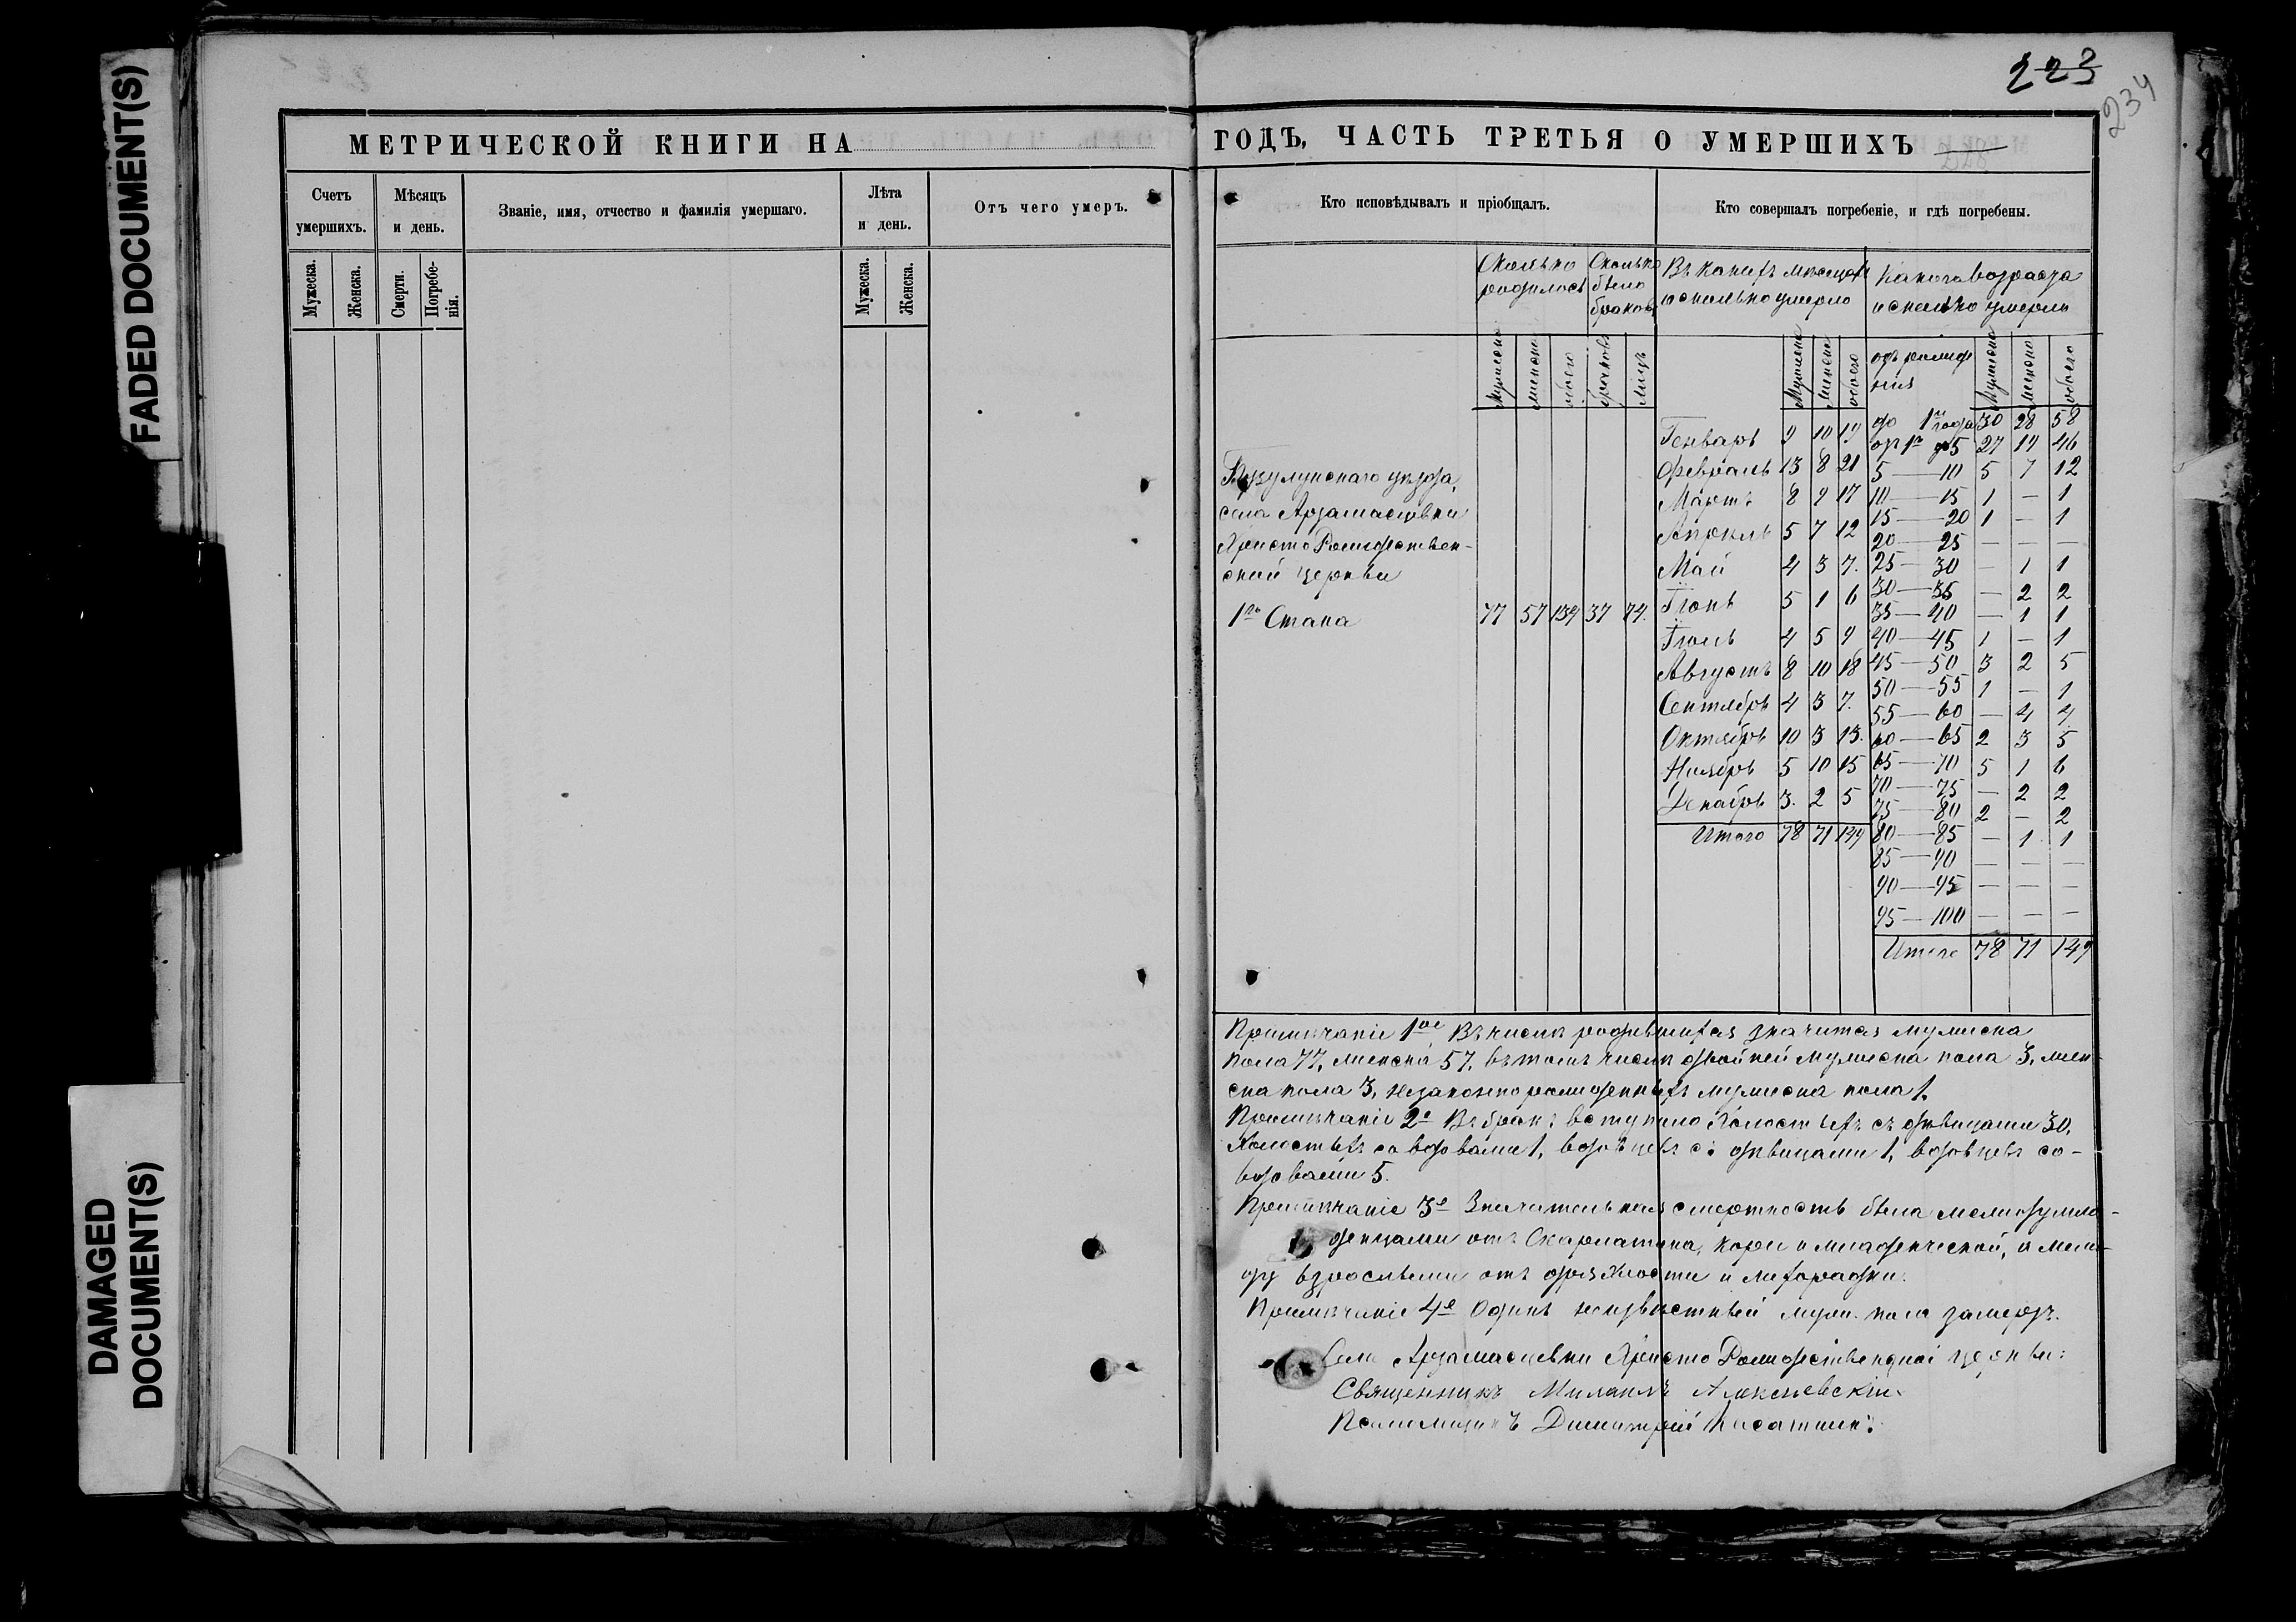 FADED DOCUMENT(S)
DAMAGED
DOCUMENT(S)
МЕТРИЧЕСКОЙ КНИГИ НА
Счетъ умершихъ.
Мѣсяцъ и день.
Званіе, имя, отчество и фамилія умершаго.
Лѣта и день.
Отъ чего умеръ.
Мужеска.
Женска.
Смерти.
Погребе-
нія.
Мужеска.
Женска.
223
234
ГОДЪ, ЧАСТЬ ТРЕТЬЯ О УМЕРШИХЪ
Кто исповѣдывалъ и пріобщалъ.
Кто совершалъ погребеніе, и гдѣ погребены.
Сколько родилось
Сколько было браковъ
Въ какихъ мѣсяцахъ и сколько умерло
Какого возраста и сколько умерли
Мужеска
женска
обоего
браковъ
лицъ
Мужеска
Женска
обоего
отъ рожде
нія
Мужеска
женска
обоего
Бузулукскаго уѣзда,
села Арзамасцевки
Христо Рождествен-
ской церкви
1го Стана 77 57 134 37 74.
Генварь 9 10 19
Февраль 13 8 21
Мартъ 8 9 17
Апрѣль 5 7 12
Май 4 3 7.
Іюнь 5 1 6
Іюль 4 5 9
Августъ 8 10 18
Сентябрь 4 3 7.
Октябрь 10 3 13.
Ноябрь 5 10 15
Декабрь 3. 2 5
Итого 78 71 149
до 1го года 30 28 58
отъ 1го до 5 27 19 46
5 — 10 5 7 12
10 — 15 1 — 1
15 — 20 1 — 1
20 — 25 — — —
25 — 30 — 1 1
30 — 35 — 2 2
35 — 40 — 1 1
40 — 45 1 — 1
45 — 50 3 2 5
50 — 55 1 — 1
55 — 60 — 4 4
60 — 65 2 3 5
65 — 70 5 1 6
70 — 75 — 2 2
75 — 80 2 — 2
80 — 85 — 1 1
85 — 90 — — —
90 — 95 — — —
95 — 100 — — —
Итого 78 71 149
Примѣчаніе 1ое Въ числѣ родившихся значится мужеска
пола 77, женска 57, въ томъ числѣ двойней мужеска пола 3, жен-
ска пола 3, незаконнорожденныхъ мужеска пола 1.
Примѣчаніе 2е Въ бракъ вступило Холостыхъ съ дѣвицами 30,
Холостыхъ со вдовами 1, вдовцевъ съ дѣвицами 1, вдовцевъ со-
вдовами 5.
Примѣчаніе 3е Значительная смертность была между мла-
денцами отъ Скарлатина, Кори и младенческой, и меж-
ду взрослыми отъ дряхлости и лихорадки.
Примѣчаніе 4е Одинъ неизвѣстный муж. пола замерзъ.
Села Арзамасцевки Христо Рождественской церкви:
Священникъ Михаилъ
Псаломщикъ Димитрій